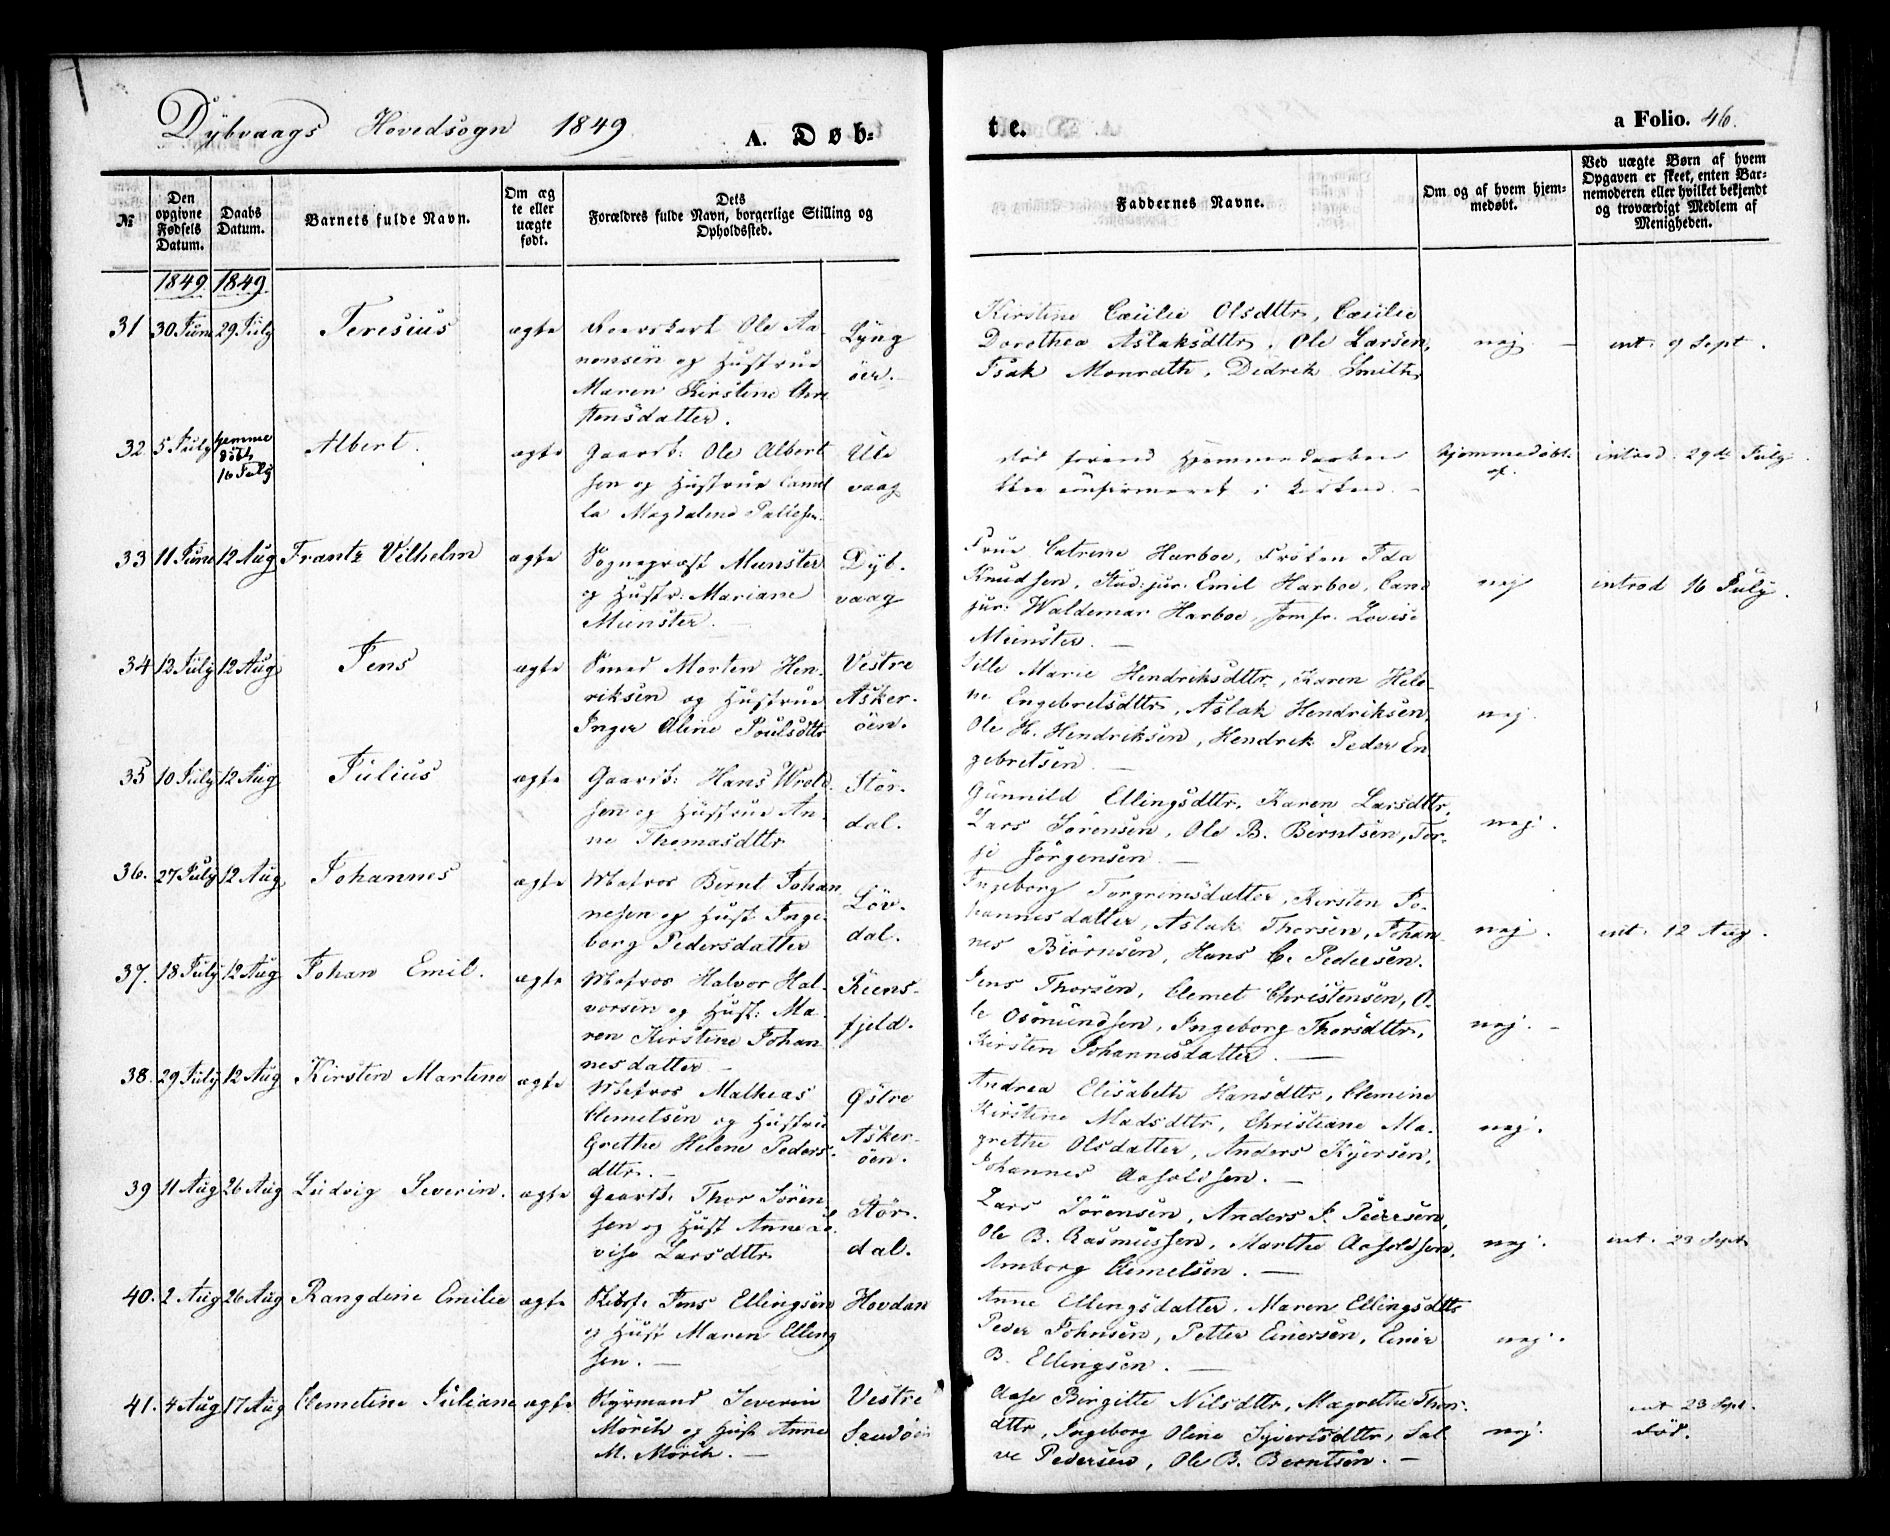 Dybvaags Hovedsogn 1849
A. Døb-
te.
a Folio. 46.
№
Den opgivne Fødsels Datum.
Daabs Datum.
Barnets fulde Navn.
Om ægte eller uægte født.
Dets Forældres fulde Navn, borgerlige Stilling og Opholdssted.
Faddernes Navne.
Om og af hvem hjemmedøbt.
Ved uægte Børn af hvem Opgaven er skeet, enten Barnemoderen eller hvilket bekjendt og troværdigt Medlem af Menigheden.
1849 1849
31 30 Juni 29 July Teresius ægte
Ole Aa
nensen og Hustrue
Maren Kirstine Chri
stensdatter.
Lyng
öer.
Kirstine Cæcilie Olsdttr, Cæcilie
Dorothea Aslaksdttr, Ole Larsen,
Isak Monrath, Didrik Smith
nej.
int. 9 Sept.
32. 5 July hjemme
döbt
16 July
Albert. ægte
Gaardb: Ole Albert
sen og Hustrue Camil
la Magdalene
Ule
vaag
död forend Hjemmedaaben
blev confirmeret i Kirken.
hjemmedøbt
af
introd. 29de July.
33 11 Juni 12 Aug Frantz Vilhelm ægte
Sognepræst Munster
og Hustr: Mariane
Munster.
Dyb.
vaag
Frue Catrine Harboe, Fröken Ida
Knudsen, Stud: jur: Emil Harboe, Cand
jur: Waldemar Harboe, Jomfr. Lovise
Munster.
nej
introd 16 July.
34 12 July 12 Aug Jens ægte
Smed Morten Hen
riksen og Hustrue
Inger Oline Poulsdttr
Vestre
Asker.
öen.
Sille Marie Hendriksdttr, Karen Hele
ne Engebretsdttr, Aslak Hendriksen,
Ole H. Hendriksen, Hendrik Peder En
gebretsen
nej.
35 10 July 12 Aug Julius ægte
Gaardb: Hans Wrold
sen og Hustrue An
ne Thomasdttr
Stör.
dal.
Gunnild Ellingsdttr, Karen Larsdttr,
Lars Sörensen, Ole B. Berntsen, Ter-
je Jörgensen
nej.
36. 27 July 12 Aug Johannes ægte
Matros Bernt Johan
nesen og Hust. Inge
borg Pedersdatter
Löv.
dal.
Ingeborg Torgrimsdatter, Kirsten Jo-
hannesdatter, Aslak Thorsen, Johan
nes Biörnsen, Hans C. Pedersen.
nej.
int. 12 Aug.
37. 18 July 12 Aug Johan Emil. ægte
Matros Halvor Hal-
vorsen og Hust: Ma-
ren Kirstine Johan
nesdatter
Kiens-
fjeld.
Jens Thorsen, Clemet Christensen, O-
le Osmundsen, Ingeborg Thorsdttr,
Kirsten Johannesdatter.
nej.
38. 29 July 12 Aug Kirsten Martine ægte
Matros Mathias
Clemetsen og Hustru
Grethe Helene Peders
dttr.
Østre
Asker.
öen.
Andrea Elisabeth Hansdttr, Clemine
Kirstine Madsdttr, Christiane Ma-
grethe Olsdatter, Anders Kjersen,
Johannes Aasoldsen.
nej.
39 11 Aug 26 Aug Ludvig Severin. ægte
Gaardb. Thor Sören
sen og Hust Anne Lo
vise Larsdttr
Stör.
dal.
Lars Sörensen, Anders P. Pedersen,
Ole B. Rasmussen, Marthe Aasoldsen,
Amborg Clemetsen.
nej.
int. 23 Sept.
40. 2 Aug 26 Aug Rangdine Emilie ægte
Jens Ellingsen
og Hust Maren Elling
sen.
Hovdan
Anne Ellingsdatter, Maren Ellingsdttr
Peder Johnsen, Petter Einersen, Einer
B. Ellingsen.
nej.
41. 4 Aug 17 Aug Clemetine Juliane ægte
Styrmand Severin
Mörch og Hust Anne
M. Mörch.
Vestre
Sandöen
Aase Birgitte Nilsdttr, Magrethe Thor-
dttr, Ingeborg Oline Syvertsdttr, Sal
ve Pedersen, Ole B. Berntsen.
nej.
int 23 Sept.
död.